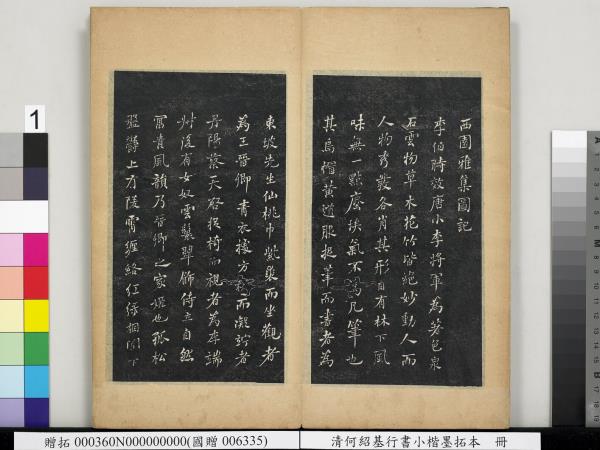 西園雅集圖記
李伯時效唐小李將軍為著色泉
石雲物草木花竹皆絕妙動人而
人物秀發各肖其形自有林下風
味無一點塵埃氣不為凡筆也
其烏帽黃道服捉筆而書者為
東坡先生仙桃巾紫裘而坐觀者
為王晉卿青衣據方几而凝竚者
丹陽蔡天啓捉椅而視者為李端
叔後有女奴雲鬟翠飾侍立自然
富貴風韻乃晉卿之家姬也孤松
盤鬱上有凌霄纏絡紅綠相間下
1
贈拓 000360N000000000(國贈 006335)
清何紹基行書小楷墨拓本 冊